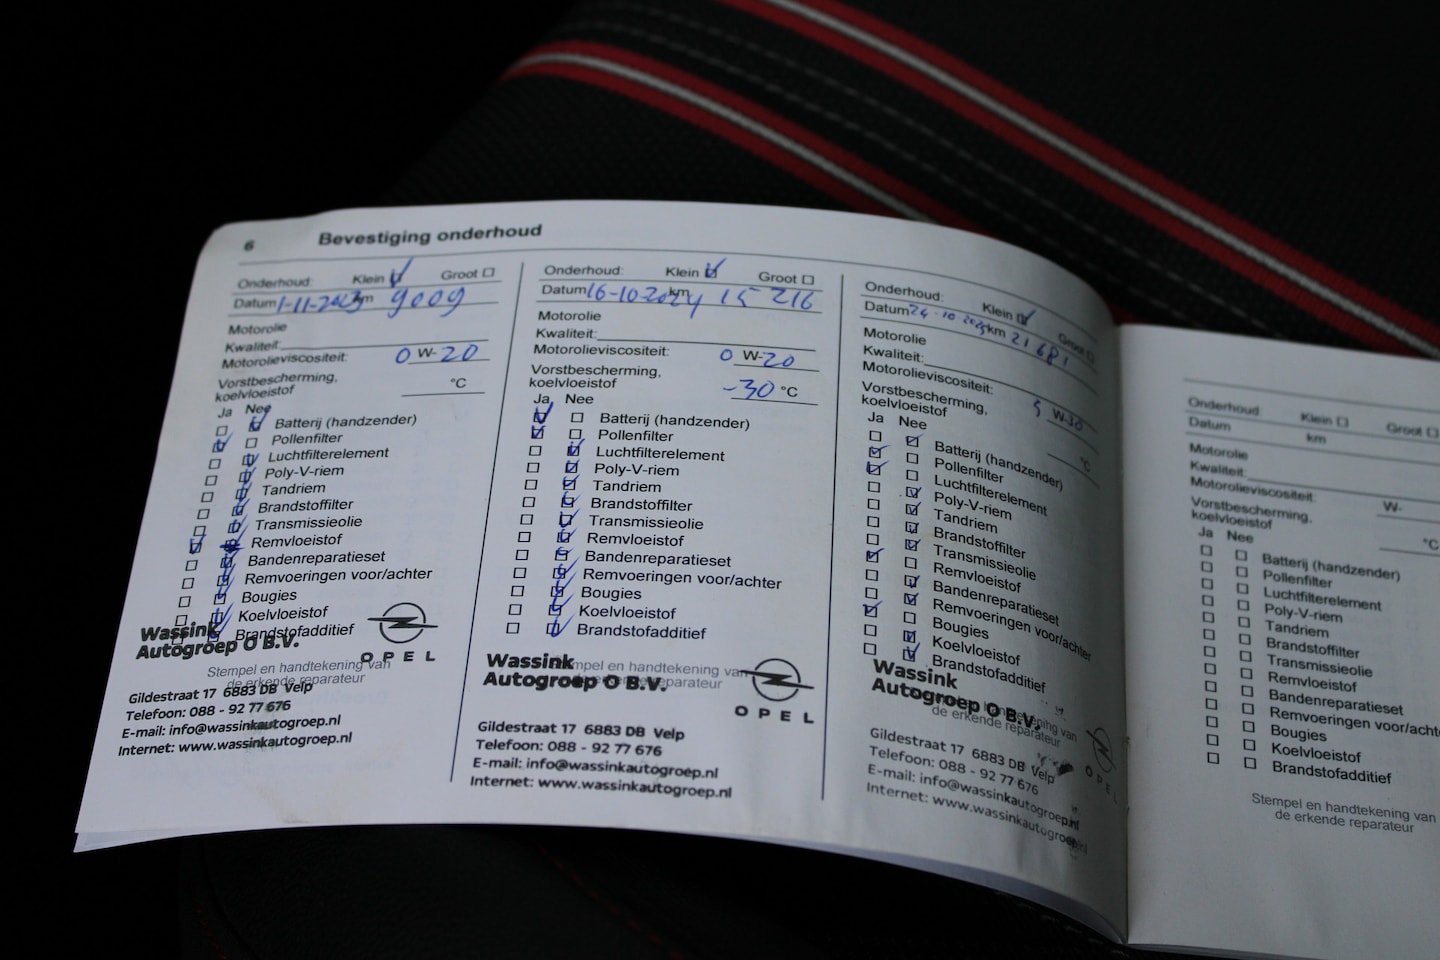 6 Bevestiging onderhoud
Onderhoud: Klein Groot
Datum 1-11-2023 km 9009
Motorolie
Kwaliteit:
Motorolieviscositeit: 0 W-20
Vorstbescherming,
koelvloeistof °C
Ja Nee
Batterij (handzender)
Pollenfilter
Luchtfilterelement
Poly-V-riem
Tandriem
Brandstoffilter
Transmissieolie
Remvloeistof
Bandenreparatieset
Remvoeringen voor/achter
Bougies
Koelvloeistof
Brandstofadditief
Wassink
Autogroep O B.V.
OPEL
Stempel en handtekening van
de erkende reparateur
Gildestraat 17 6883 DB Velp
Telefoon: 088 - 92 77 676
E-mail: info@wassinkautogroep.nl
Internet: www.wassinkautogroep.nl
Onderhoud: Klein Groot
Datum 16-10-2024 km 15 216
Motorolie
Kwaliteit:
Motorolieviscositeit: 0 W-20
Vorstbescherming,
koelvloeistof -30 °C
Ja Nee
Batterij (handzender)
Pollenfilter
Luchtfilterelement
Poly-V-riem
Tandriem
Brandstoffilter
Transmissieolie
Remvloeistof
Bandenreparatieset
Remvoeringen voor/achter
Bougies
Koelvloeistof
Brandstofadditief
Wassink
Autogroep O B.V.
OPEL
Stempel en handtekening van
de erkende reparateur
Gildestraat 17 6883 DB Velp
Telefoon: 088 - 92 77 676
E-mail: info@wassinkautogroep.nl
Internet: www.wassinkautogroep.nl
Onderhoud: Klein Groot
Datum 24-10-2025 km 21681
Motorolie
Kwaliteit:
Motorolieviscositeit: 5 W-30
Vorstbescherming,
koelvloeistof °C
Ja Nee
Batterij (handzender)
Pollenfilter
Luchtfilterelement
Poly-V-riem
Tandriem
Brandstoffilter
Transmissieolie
Remvloeistof
Bandenreparatieset
Remvoeringen voor/achter
Bougies
Koelvloeistof
Brandstofadditief
Wassink
Autogroep O B.V.
OPEL
handtekening van
de erkende reparateur
Gildestraat 17 6883 DB Velp
Telefoon: 088 - 92 77 676
E-mail: info@wassinkautogroep.nl
Internet: www.wassinkautogroep.nl
Onderhoud: Klein Groot
Datum km
Motorolie
Kwaliteit:
Motorolieviscositeit: W-
Vorstbescherming,
koelvloeistof °C
Ja Nee
Batterij (handzender)
Pollenfilter
Luchtfilterelement
Poly-V-riem
Tandriem
Brandstoffilter
Transmissieolie
Remvloeistof
Bandenreparatieset
Remvoeringen voor/acht
Bougies
Koelvloeistof
Brandstofadditief
Stempel en handtekening van
de erkende reparateur